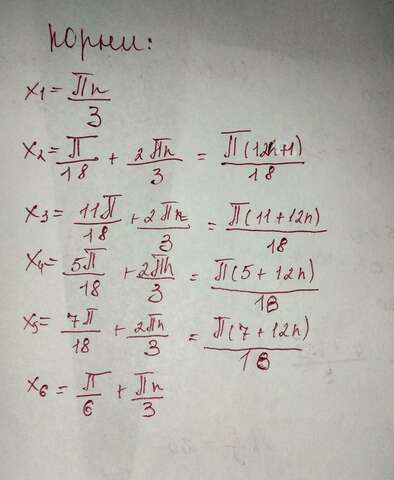 Корни:
x1 = Пn/3
x2 = П/18 + 2Пn/3 = П(12n+1)/18
x3 = 11П/18 + 2Пn/3 = П(11+12n)/18
x4 = 5П/18 + 2Пn/3 = П(5+12n)/18
x5 = 7П/18 + 2Пn/3 = П(7+12n)/18
x6 = П/6 + Пn/3